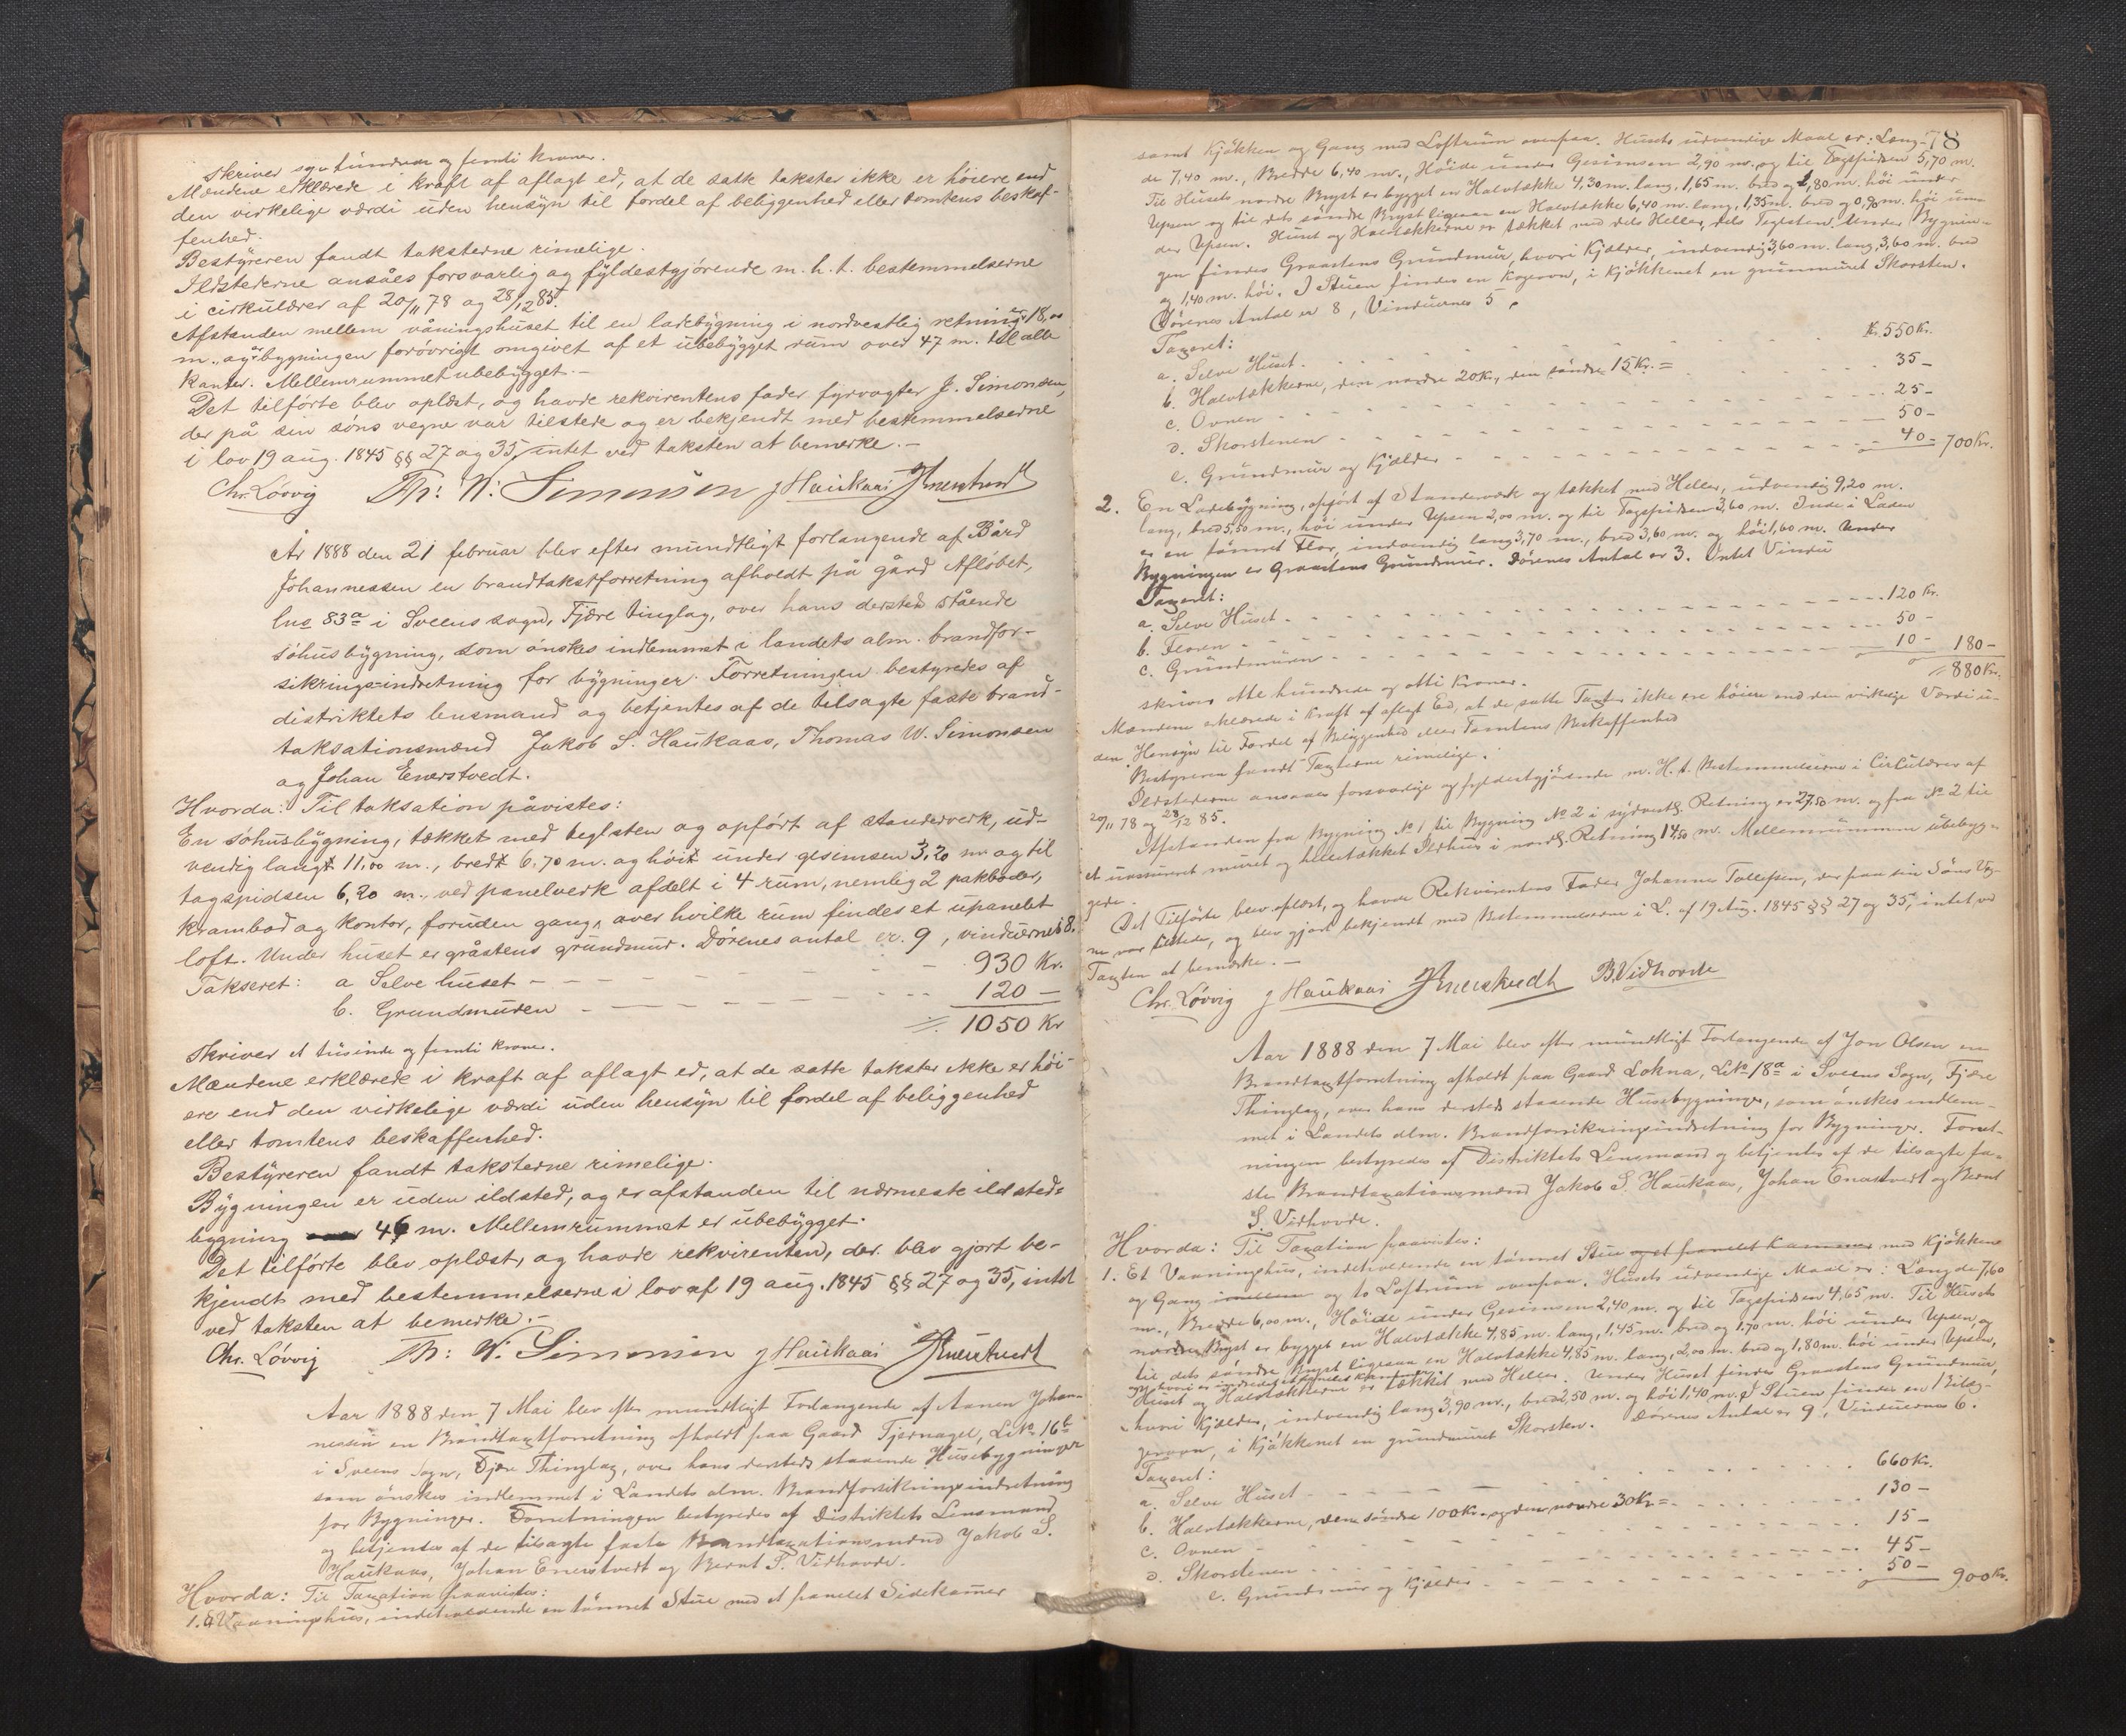 skriver syv hundrede og femti kroner.
Mændene erklærede i kraft af aflagt ed, at de satte takster ikke er høiere end
den virkelige værdi uden hensyn til fordel af beliggenhed eller tomtens beskaf-
fenhed.
Bestyreren fandt taksterne rimelige.
Ildstederne ansåes forsvarlig og fyldestgjørende m. h. t. bestemmelserne
i cirkulærer af 20/11 78 og 28/12 85.
Afstanden mellem våningshuset til en ladebygning i nordvestlig retning er 18,00
m., og er bygningen forøvrigt omgivet af et ubebygget rum over 47 m. til alle
kanter. Mellemrummet ubebygget.-
Det tilførte blev oplæst, og havde rekvirentens fader fyrvogter J. Simonsen,
der på sin søns vegne var tilstede og er bekjendt med bestemmelserne
i lov 19 aug. 1845 §§ 27 og 35, intet ved taksten at bemerke.-
Chr. Løvvig Th: W. Simonsen J Haukaas J Enerstvedt
År 1888 den 21 februar blev efter mundtligt forlangende af Bård
Johannessen en brandtakstforretning afholdt på gård Afløbet,
lno 83a i Sveens sogn, Fjære tinglag, over hans dersteds stående
søhusbygning, som ønskes indlemmet i landets alm. brandfor-
sikrings-indretning for bygninger. Forretningen bestyredes af
distriktets lensmand og betjentes af de tilsagte faste brand-
taksationsmænd Jakob S. Haukaas, Thomas W. Simonsen
og Johan Enerstvedt.
Hvorda: Til taksation påvistes:
En søhusbygning, tækket med teglsten og opført af standerverk, ud-
vendig langt 11,00 m., bredt 6.70 m. og høit under gesimsen 3,20 m. og til
tagspidsen 6,20 m., ved panelverk afdelt i 4 rum, nemlig 2 pakboder,
krambod og kontor, foruden gang, over hvilke rum findes et upanelet
loft. Under huset er gråstens grundmur. Dørenes antal er 9, vinduernes 8.
Takseret: a Selve huset - - - 930 Kr.
b. Grundmuren - - - 120 -
1050 Kr
skriver et tusinde og femti kroner.
Mændene erklærede i kraft af aflagt ed, at de satte takster ikke er høi-
ere end den virkelige værdi uden hensyn til fordel af beliggenhed
eller tomtens beskaffenhed.
Bestyreren fandt taksterne rimelige.
Bygningen er uden ildsted, og er afstanden til nærmeste ildsteds-
bygning 46 m. Mellemrummet er ubebygget.
Det tilførte blev oplæst, og havde rekvirenten, der blev gjort be-
kjendt med bestemmelserne i lov af 19 aug. 1845 §§ 27 og 35, intet
ved taksten at bemerke.-
Chr. Løvvig Th: W. Simonsen J Haukaas J Enerstvedt
Aar 1888 den 7 Mai blev efter mundtligt Forlangende af Johan-
nessen en Brandtaxtforretning afholdt paa Gaard Tjernagel, LNo 16b
i Sveens Sogn, Fjære Thinglag, over hans dersteds staaende Husebygninger
som ønskes indlemmet i Landets alm. Brandforsikringsindretning
for Bygninger. Forretningen bestyredes af Distriktets Lensmand
og betjentes af de tilsagte faste Brandtaxationsmænd Jakob S.
Haukaas, Johan Enerstvedt og Bernt S. Vidhovde.
Hvorda: Til Taxation paavistes:
1. Et Vaaningshus, indeholdende en tømret Stue med et panelet Sidekamer
78
samt Kjøkken og Gang med Loftrum ovenpaa. Husets udvendige Maal er: Læng-
de 7,40 m., Bredde 6,40 m., Høide under Gesimsen 2,90 m. og til Tagspidsen 5,70 m.
Til Husets nordre Bryst er bygget en Halvtække 4,30 m. lang, 1,65 m. bred og 1,80 m. høi under
Upsen og til dets søndre Bryst ligesaa en Halvtække 6,40 m. lang, 1,35 m. bred og 0,90 m. høi un-
der Upsen. Huset og Halvtækkerne er tækket med dels Heller, dels Teglsten. Under Bygnin-
gen findes Graastens Grundmur, hvori Kjælder, indvendig 3,60 m. lang, 3,60 m. bred
og 1,40 m. høi. I Stuen findes en Kogeovn, i Kjøkkenet en grundmuret Skorsten.
Dørenes Antal er 8, Vinduernes 5.
Taxeret:
a. Selve Huset - - - Kr. 550 Kr.
b. Halvtækkerne, den nordre 20 Kr., den søndre 15 Kr. = - - - 35 -
c. Ovnen - - - 25 -
d. Skorstenen - - - 50 -
e. Grundmur og Kjælder - - - 40 = 700 Kr.
2. En Ladebygning, opført af Standerværk og tækket med Heller, udvendig 9,20 m.
lang, bred 5,50 m., høi under Upsen 2,00 m. og til Tagspidsen 3,60 m. Inde i Laden
er en tømret Flor, indvendig lang 3,70 m., bred 3,60 m. og høi 1,60 m. Under
Bygningen er Graastens Grundmur. Dørenes Antal er 3. Intet Vindu
Taxeret:
a. Selve Huset - - - 120 Kr.
b. Floren - - - 50 -
c. Grundmuren - - - 10 - 180 -
880 Kr.
skriver otte hundrede og otti Kroner.
Mændene erklærede i Kraft af aflagt Ed, at de satte Taxter ikke ere høiere end den virkelige Værdi u-
den Hensyn til Fordel af Beliggenhed eller Tomtens Beskaffenhed
Bestyreren fandt Taxterne rimelige.
Ildstederne ansaaes forsvarlige og fyldestgjørende m. H. t. Bestemmelserne i Cirkulærer af
20/11 78 og 28/12 85.
Afstanden fra Bygning No 1 til Bygning No 2 i sydvestl. Retning er 27,50 m. og fra No 2 til
et uassureret muret og helletækket Ildhus i nordl. Retning 14,50 m. Mellemrummene ubebyg-
gede.
Det Tilførte blev oplæst, og havde Rekvirentens Fader Johannes Tollefsen, der paa sin Søns Veg-
ne var tilstede, og blev gjort bekjendt med Bestemmelserne i L. af 19 Aug. 1845 §§ 27 og 35, intet ved
Taxten at bemærke.-
Chr. Løvvig J Haukaas J Enerstvedt B Vidhovde
Aar 1888 den 7 Mai blev efter mundtligt Forlangende af Jon Olsen en
Brandtaxtforretning afholdt paa Gaard Lokna, LNo 18a i Sveens Sogn, Fjære
Thinglag, over hans dersteds staaende Husebygninger, som ønskes indlem-
met i Landets alm. Brandforsikringsindretning for Bygninger. Forret-
ningen bestyredes af Distriktets Lensmand og betjentes af de tilsagte fa-
ste Brandtaxationsmænd Jakob S. Haukaas, Johan Enerstvedt og Bernt
S. Vidhovde.
Hvorda: Til Taxation paavistes:
1. Et Vaaningshus, indeholdende en tømret Stue og et panelet Kammer med Kjøkken
og Gang og to Loftrum ovenpaa. Husets udvendige Maal er: Længde 7,60
m., Bredde 6,00 m., Høide under Gesimsen 2,40 m. og til Tagspidsen 4,65 m. Til Husets
nordre Bryst er bygget en Halvtække 4,85 m. lang, 1,45 m. bred og 1.70 m. høi under Upsen, og
til dets søndre Bryst ligesaa en Halvtække 4,85 m. lang, 2,00 m. bred og 1,80 m. høi under Upsen,
og hvori er indredet et panelet Kammer.
Huset og Halvtækkerne er tækket med Heller. Under Huset findes Graastens Grundmur,
hvori Kjælder, indvendig lang 3,90 m., bred 2,50 m. og høi 1,40 m. I Stuen findes en Bilæg-
gerovn, i Kjøkkenet en grundmuret Skorsten. Dørenes Antal er 9, Vinduernes 6.
Taxeret:
a. Selve Huset - - - 660 Kr.
b. Halvtækkerne, den søndre 100 Kr. og den nordre 30 Kr. = - - - 130 -
c. Ovnen - - - 15 -
d. Skorstenen - - - 45 -
e. Grundmur og Kjælder - - - 50 - 900 Kr.